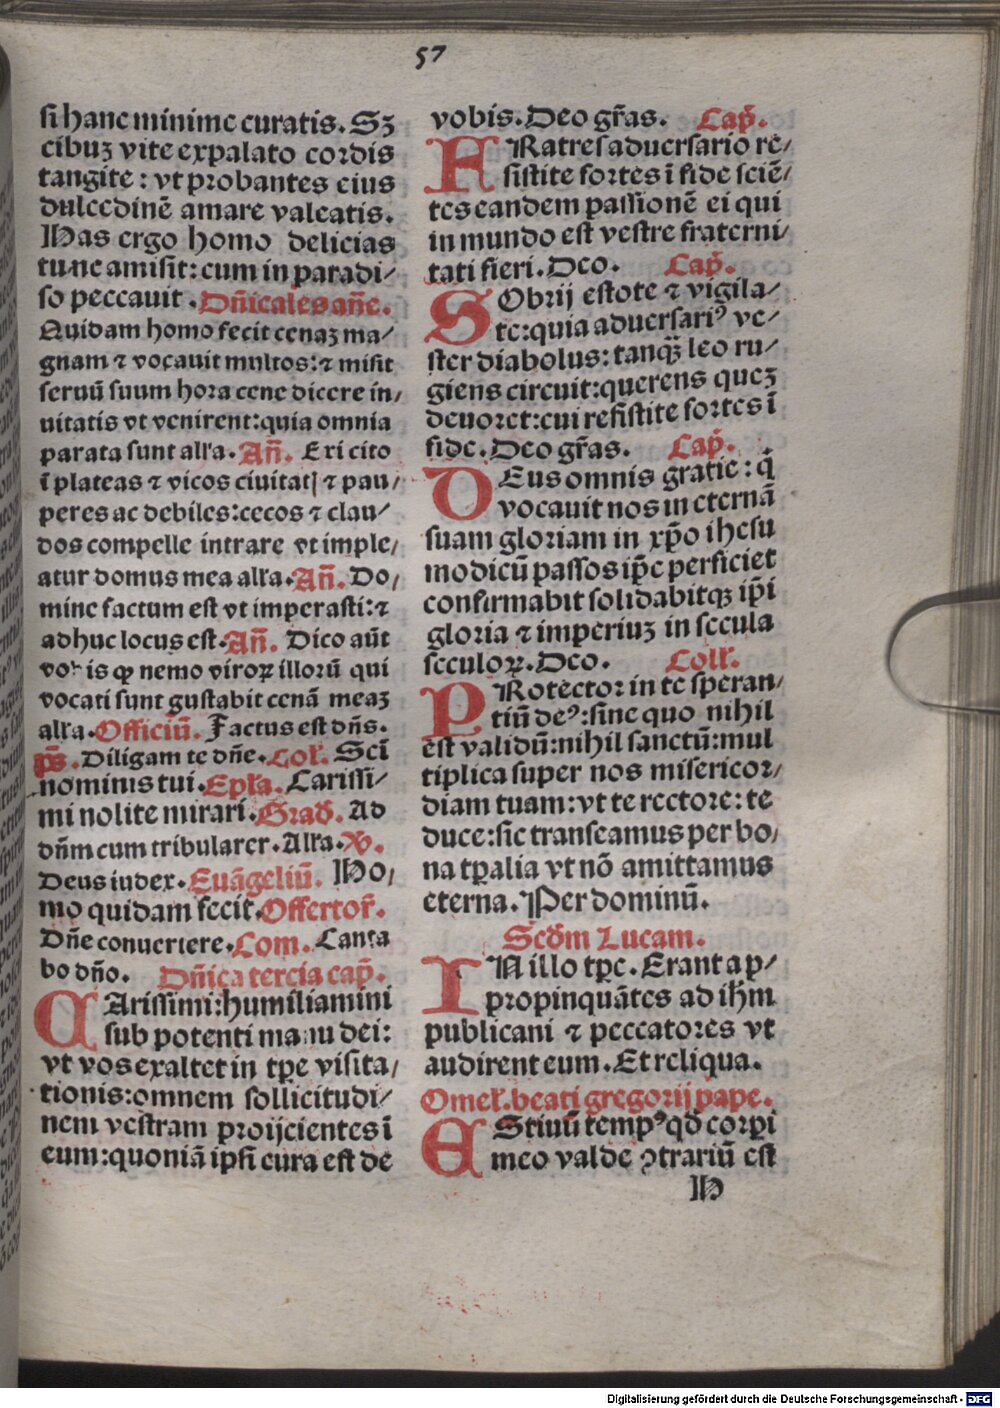 57
ſi hanc minime curatis. Sꝫ
cibuꝫ vite ex palato cordis
tangite : vt probantes eius
dulcedinē amare valeatis.
Has ergo homo delicias
tunc amiſit: cum in paradi/
ſo peccauit . Dn̄icales an̄e.
Quidam homo fecit cenaꝫ ma/
gnam ⁊ vocauit multos: ⁊ miſit
ſeruū ſuum hora cene dicere in/
uitatis vt venirent: quia omnia
parata ſunt all'a. An̄. Exi cito
ī plateas ⁊ vicos ciuitatꝭ ⁊ pau/
peres ac debiles: cecos ⁊ clau/
dos compelle intrare vt imple/
atur domus mea all'a. An̄. Do/
mine factum eſt vt imperaſti: ⁊
adhuc locus eſt. An̄. Dico aūt
vobis ꝙ nemo viroꝝ illorū qui
vocati ſunt guſtabit cenā meaꝫ
all'a. Officiū. Factus eſt dn̄s.
p̄s. Diligam te dn̄e. Col'. Scī
nominis tui. Epl'a. Cariſſi/
mi nolite mirari. Grad'. Ad
dn̄m cum tribularer. All'a. V.
Deus iudex. Euāgeliū. Ho/
mo quidam fecit. Offertor̄.
Dn̄e conuertere. Com. Canta
bo dn̄o. Dn̄ica tercia cap̄.
CAriſſimi: humiliamini
ſub potenti manu dei:
vt vos exaltet in tp̄e viſita/
tionis: omnem ſollicitudi/
nem veſtram proijcientes ī
eum: quoniā ipſi cura eſt de
vobis. Deo gr̄as. Cap̄.
FRatres aduerſario re/
ſiſtite fortes ī fide ſciē/
tes eandem paſſionē ei qui
in mundo eſt veſtre fraterni/
tati fieri. Deo. Cap̄.
SObrij eſtote ⁊ vigila/
te: quia aduerſariꝰ ve/
ſter diabolus: tanqꝫ leo ru/
giens circuit: querens queꝫ
deuoret: cui reſiſtite fortes ī
fide. Deo gr̄as. Cap̄.
DEus omnis gratie: q̄
vocauit nos in eternā
ſuam gloriam in xp̄o iheſu
modicū paſſos ip̄e perficiet
confirmabit ſolidabitqꝫ ip̄i
gloria ⁊ imperiuꝫ in ſecula
ſeculoꝝ. Deo. Coll'.
PRotector in te ſperan/
tiū deꝰ: ſine quo nihil
eſt validū: nihil ſanctū: mul
tiplica ſuper nos miſericor/
diam tuam: vt te rectore: te
duce: ſic tranſeamus per bo/
na tp̄alia vt nō amittamus
eterna. Per dominū.
Scd'm Lucam.
IN illo tp̄e. Erant ap/
propinquātes ad ih̄m
publicani ⁊ peccatores vt
audirent eum. Et reliqua.
Omel'. beati gregorij pape.
EStiuū tempꝰ qd' corp̄i
meo valde ꝯtrariū eſt
H
Digitalisierung gefördert durch die Deutsche Forschungsgemeinschaft - DFG